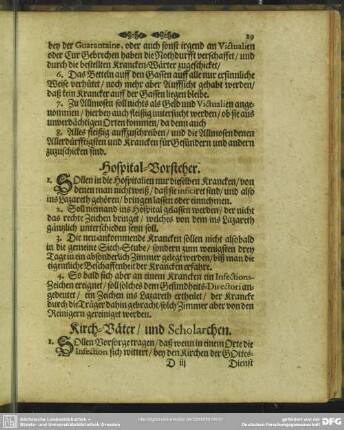 29
bey der Quarantaine, oder auch sonst irgend an Victualien
oder Cur Gebrechen haben die Nothdurfft verschaffet / und
durch die bestellten Krancken-Wärter zugeschicket /
6. Das Betteln auff den Gassen auff alle nur ersinnliche
Weise verhütet / noch mehr aber Auffsicht gehabt werden /
daß kein Krancker auff der Gassen liegen bleibe.
7. Zu Allmosen soll nichts als Geld und Victualien ange-
nommen / hierbey auch fleißig untersucht werden / ob sie aus
unverdächtigen Orten kommen / da denn auch
8. Alles fleißig auffzuschreiben / und die Allmosen denen
Allerdürfftigsten und Krancken für Gesündern und andern
zuzuschicken sind.
Hospital-Vorsteher.
1. SOllen in die Hospitalien nur dieselben Krancken / von
denen man nicht weiß / daß sie inficiret sind / und also
ins Lazareth gehören / bringen lassen oder einnehmen.
2. Soll niemand ins Hospital gelassen werden / der nicht
das rechte Zeichen bringet / welches von dem ins Lazareth
gäntzlich unterschieden seyn soll.
3. Die neuankommende Krancken sollen nicht alsobald
in die gemeine Siech-Stube / sondern zum wenigsten drey
Tag in ein absonderlich Zimmer gelegt werden / biß man die
eigentliche Beschaffenheit der Krancken erfähre.
4. So bald sich aber an einem Krancken ein Infections-
Zeichen ereignet / soll solches dem Gesundheits-Directori an-
gedeutet / ein Zeichen ins Lazareth ertheilet / der Krancke
durch die Träger dahin gebracht / solch Zimmer aber von den
Reinigern gereiniget werden.
Kirch-Väter / und Scholarchen.
1. SOllen Vorsorge tragen / daß wenn in einem Orte die
Infection sich wittert / bey den Kirchen der GOttes-
D iij
Dienst
Sächsische Landesbibliothek –
Staats- und Universitätsbibliothek Dresden
gefördert von der
Deutschen Forschungsgemeinschaft